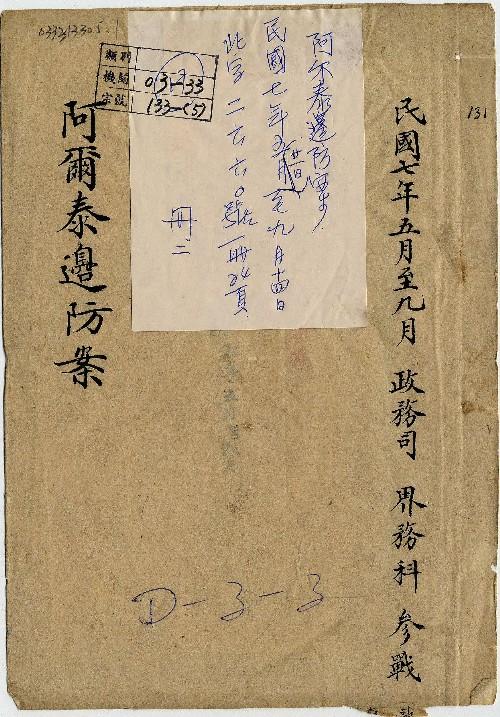 0332312305.1
131
民國七年五月至九月 政務司 界務科 參戰
阿尔泰邊防案
民國七年五月廿一日至九月十四日
此字二六六〇號一冊24頁
冊二
類別
機關 03-33
宗號 133-(5)
阿爾泰邊防案
D-3-3